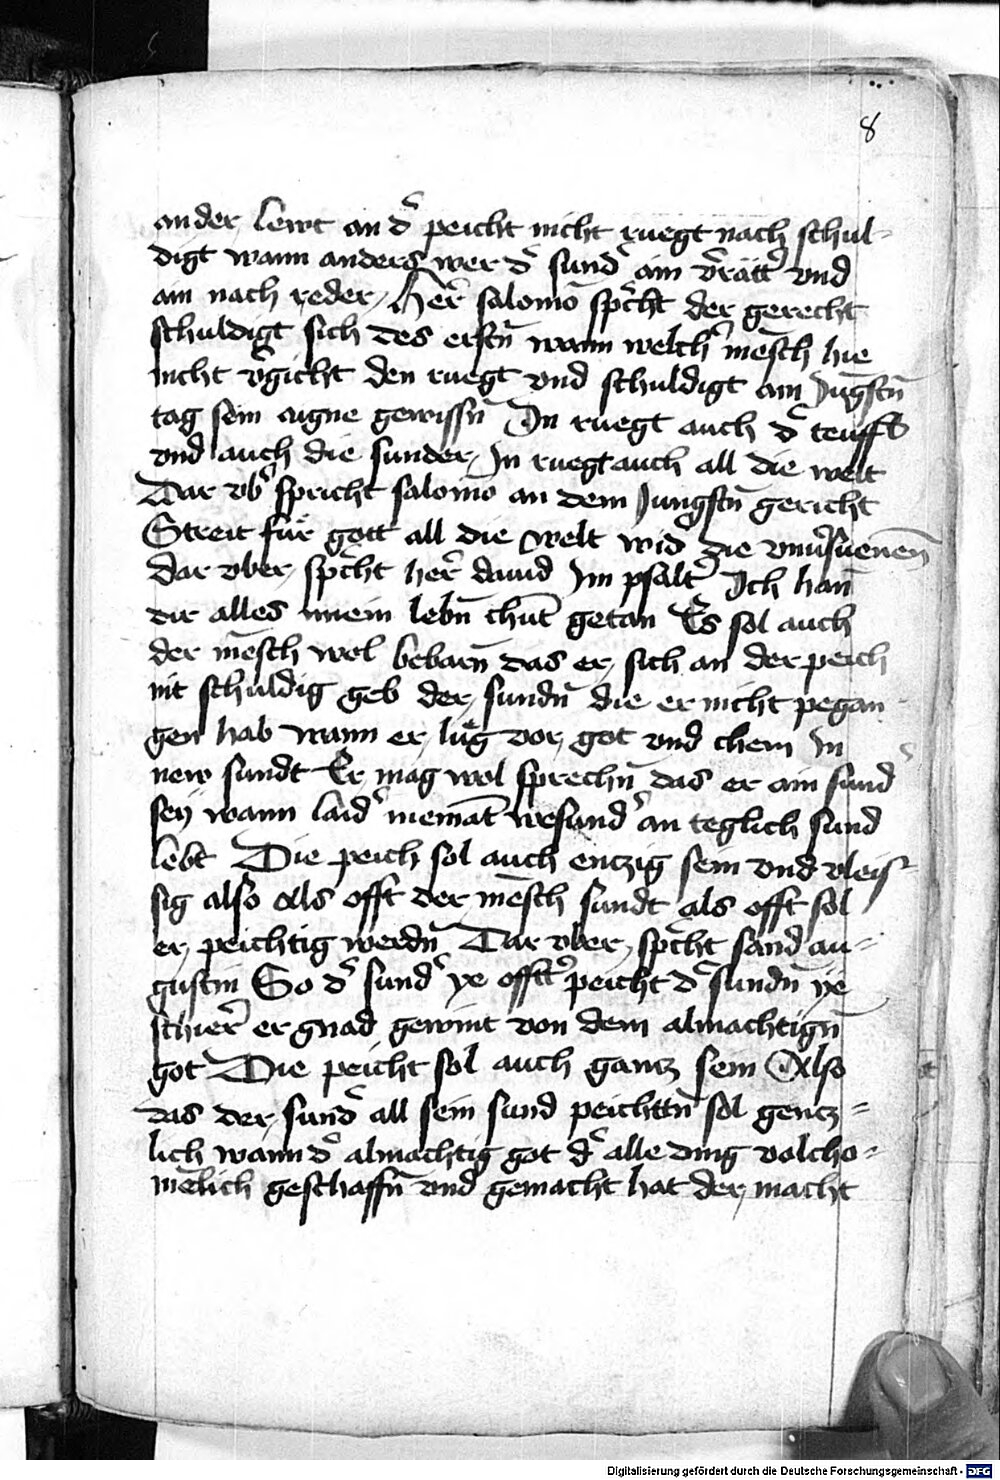 8
ander lewt an d̕ peicht nicht ruegt nach schul-
digt wann anders wer d̕ sund̕ ain v̕rätt̕ vnd
ain nach reder Her̕ salomō sp̄cht der gerecht
schuldigt sich des erstn̄ wann welch̕ mēsch hie
nicht v̕gicht den ruegt vnd schuldigt am Jūgstn̄
tag sein aigne gewissn̄ In ruegt auch d̕ teuffl
vnd auch die sunder In ruegt auch all die welt
Dar vb̕ spricht salomō an dem Jungstn̄ gericht
Streit für gott all die welt wid̕ die
dar vber sp̄cht her̕ dauid Im psalt̕ Ich han
dir alles mein lebn̄ chūt getan Es sol auch
der mēsch wol bebarn̄ das er sich an der peich
nit schuldig geb der sundn̄ die er nicht pegan-
gen hab wann er lüg vor got vnd chem In
new sundt Er mag wol sprechn̄ das er ain sund̕
sey wann laid̕ niemāt wesund̕ an teglich sund
lebt Die peich sol auch enczig sein vnd vleis-
sig also Als offt der mēsch sundt als offt sol
er peichtig werdn̄ Dar vber sp̄cht sand au-
gustin So d̕ sund̕ ye offtt̕ peicht d̕ sundn̄ ye
schier̕ er gnad gewint von dem almachtign̄
got Die peicht sol auch gancz sein Also
das der sund̕ all sein sund peichttn̄ sol gencz-
lich wann d̕ almachtig got d̕ alle ding volcho-
mēlich geschaffn̄ vnd gemacht hat der macht
Digitalisierung gefördert durch die Deutsche Forschungsgemeinschaft - DFG